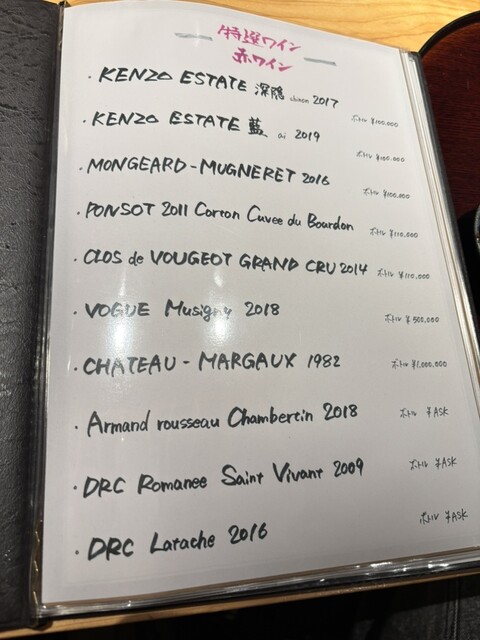 特選ワイン
赤ワイン
・KENZO ESTATE 深穏 shinon 2017 ボトル ¥100,000
・KENZO ESTATE 藍 ai 2019 ボトル ¥100,000
・MONGEARD-MUGNERET 2016 ボトル ¥100,000
・PONSOT 2011 Corton Cuvee du Bourdon ボトル ¥110,000
・CLOS de VOUGEOT GRAND CRU 2014 ボトル ¥110,000
・VOGUE Musigny 2018 ボトル ¥500,000
・CHATEAU-MARGAUX 1982 ボトル ¥1,000,000
・Armand rousseau Chambertin 2018 ボトル ¥ASK
・DRC Romanee Saint Vivant 2009 ボトル ¥ASK
・DRC Latache 2016 ボトル ¥ASK